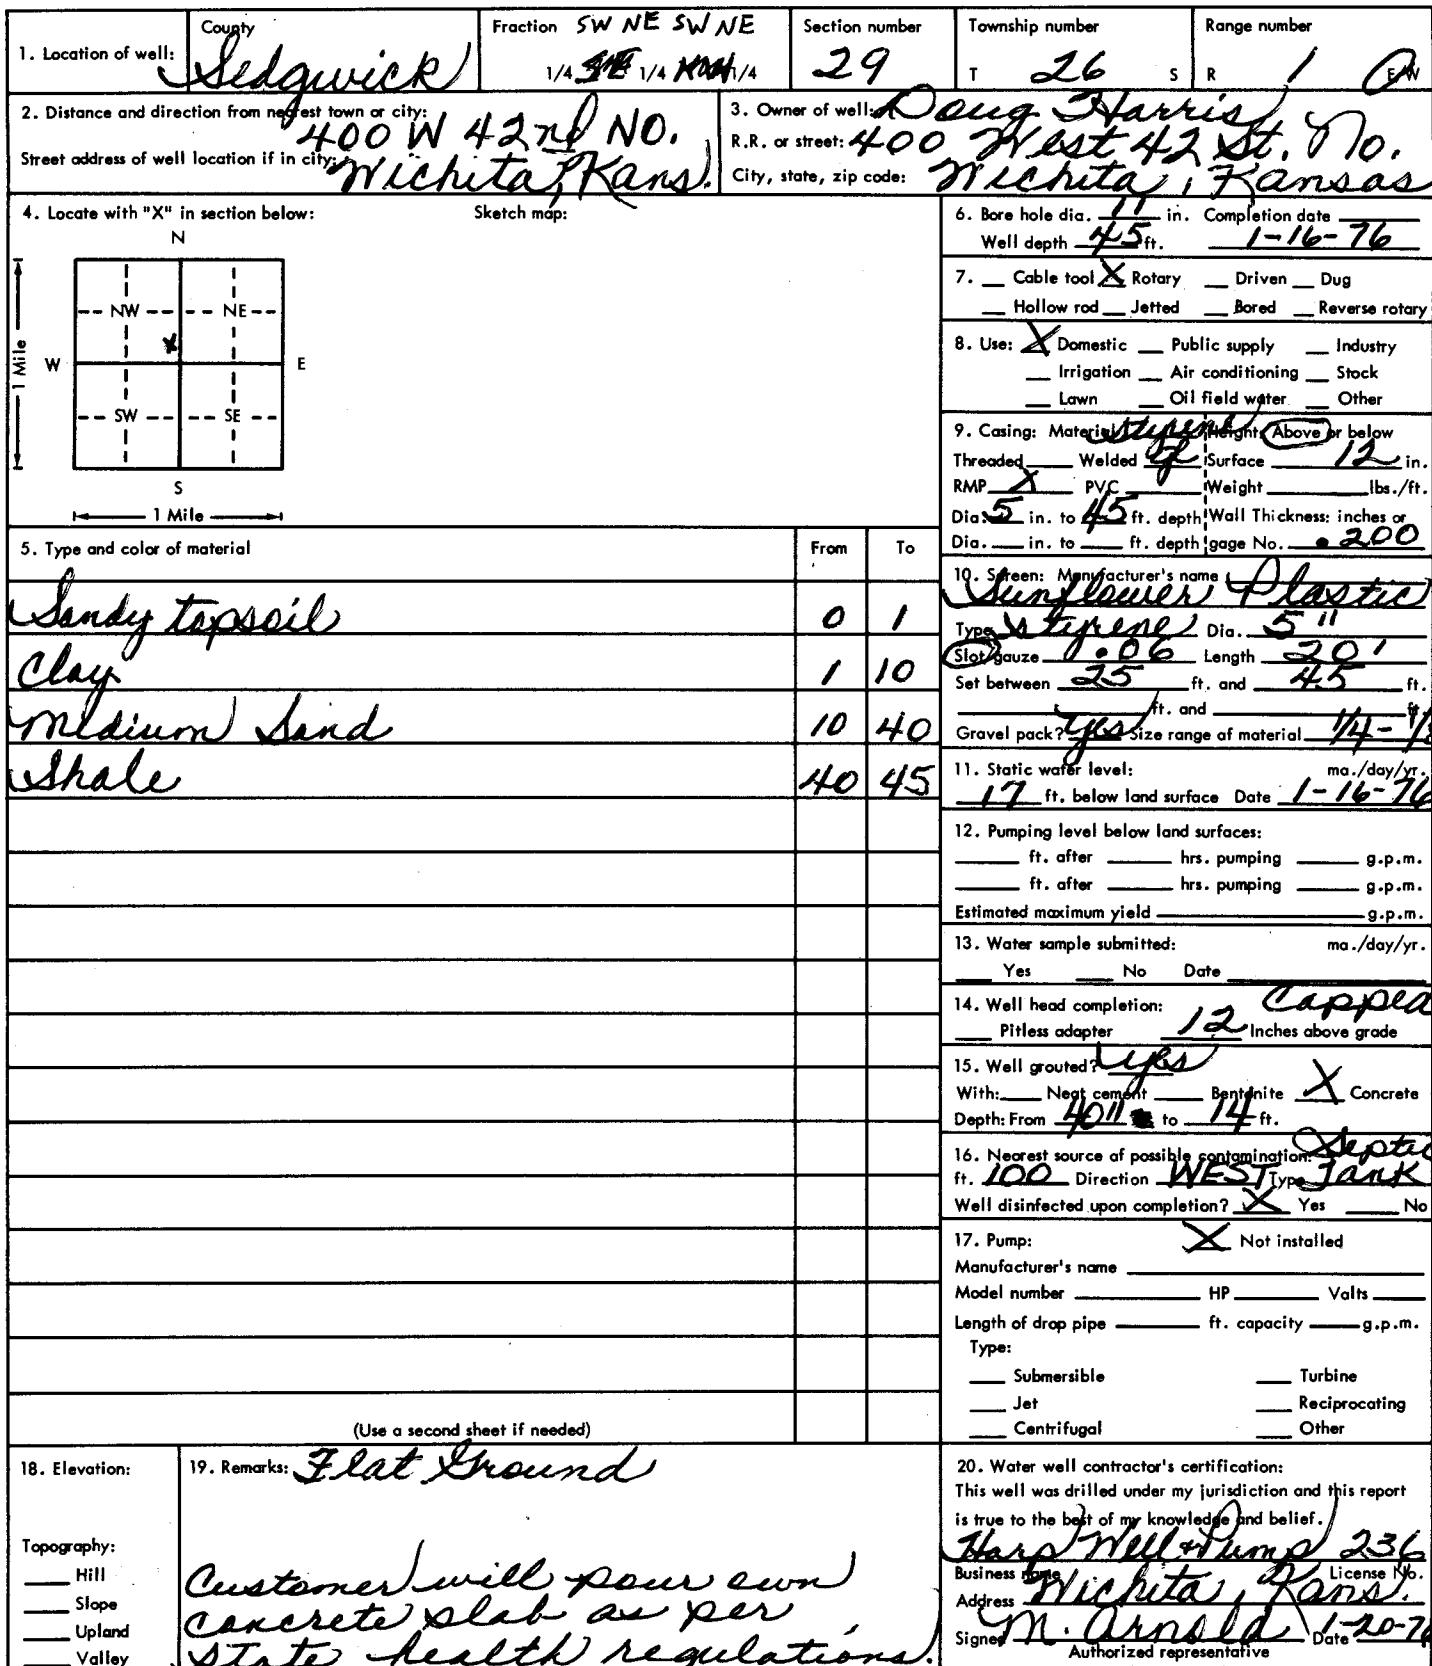 1. Location of well:
County
Sedgwick
Fraction SW NE SW NE
1/4 1/4 1/4
Section number
29
Township number
T 26 S
Range number
R 1 E W
2. Distance and direction from nearest town or city:
400 W 42nd NO.
Street address of well location if in city:
Wichita, Kans.
3. Owner of well: Doug Harris
R.R. or street: 400 West 42 St. No.
City, state, zip code: Wichita, Kansas
4. Locate with "X" in section below:
Sketch map:
N
NW NE
X
W E
1 Mile
SW SE
S
1 Mile
5. Type and color of material From To
Sandy topsoil 0 1
Clay 1 10
Medium Sand 10 40
Shale 40 45
(Use a second sheet if needed)
6. Bore hole dia. 11 in. Completion date
Well depth 45 ft. 1-16-76
7. Cable tool X Rotary Driven Dug
Hollow rod Jetted Bored Reverse rotary
8. Use: X Domestic Public supply Industry
Irrigation Air conditioning Stock
Lawn Oil field water Other
9. Casing: Material Styrene Height: Above or below
Threaded Welded Surface 12 in.
RMP X PVC Weight lbs./ft.
Dia. 5 in. to 45 ft. depth Wall Thickness: inches or
Dia. in. to ft. depth gage No. .200
10. Screen: Manufacturer's name
Sunflower Plastic
Type Styrene Dia. 5"
Slot/gauze .06 Length 20'
Set between 25 ft. and 45 ft.
ft. and ft.
Gravel pack? yes Size range of material 1/4 - 1/8
11. Static water level: mo./day/yr.
17 ft. below land surface Date 1-16-76
12. Pumping level below land surfaces:
ft. after hrs. pumping g.p.m.
ft. after hrs. pumping g.p.m.
Estimated maximum yield g.p.m.
13. Water sample submitted: mo./day/yr.
Yes No Date
14. Well head completion: Capped
Pitless adapter 12 Inches above grade
15. Well grouted? yes
With: Neat cement Bentonite X Concrete
Depth: From 40" to 14 ft.
16. Nearest source of possible contamination: Septic
ft. 100 Direction WEST Type Tank
Well disinfected upon completion? X Yes No
17. Pump: X Not installed
Manufacturer's name
Model number HP Volts
Length of drop pipe ft. capacity g.p.m.
Type:
Submersible Turbine
Jet Reciprocating
Centrifugal Other
18. Elevation:
Topography:
Hill
Slope
Upland
Valley
19. Remarks: Flat Ground
Customer will pour own
concrete slab as per
State health regulations.
20. Water well contractor's certification:
This well was drilled under my jurisdiction and this report
is true to the best of my knowledge and belief.
Harp Well & Pump 236
Business name License No.
Address Wichita, Kans.
Signed M. Arnold Date 1-20-76
Authorized representative